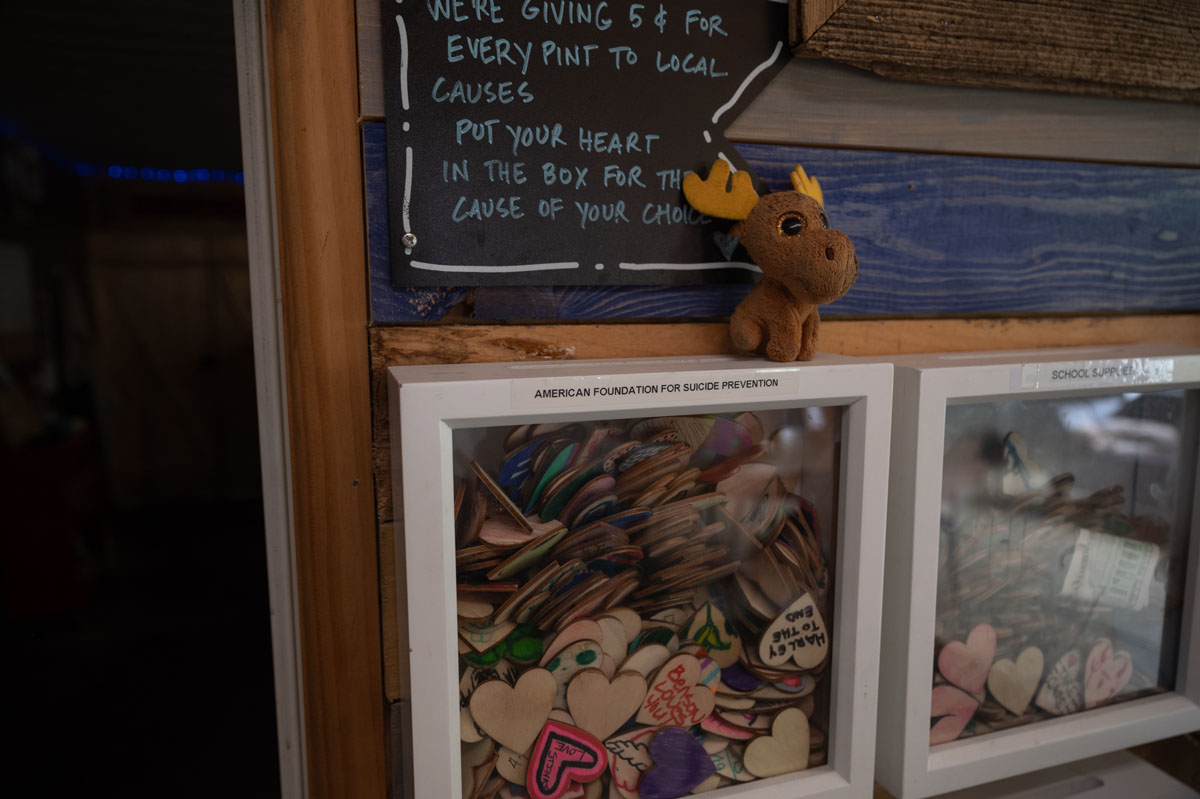 WE'RE GIVING 5¢ FOR
EVERY PINT TO LOCAL
CAUSES
PUT YOUR HEART
IN THE BOX FOR THE
CAUSE OF YOUR CHOICE
AMERICAN FOUNDATION FOR SUICIDE PREVENTION
SCHOOL SUPPLIES
HARLEY
TO THE
END
LOVE